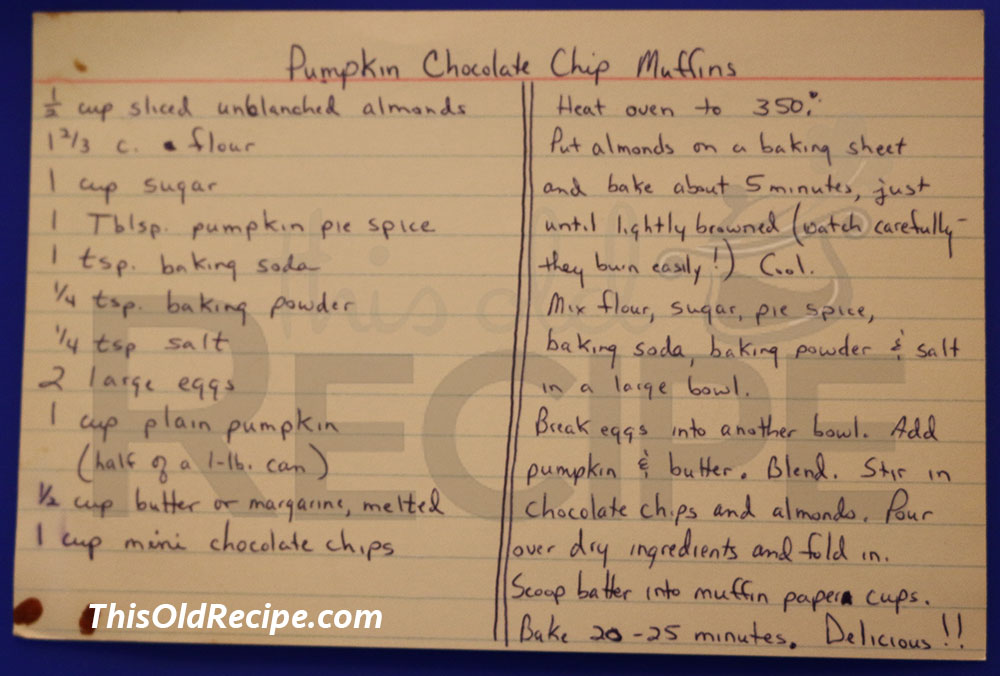 Pumpkin Chocolate Chip Muffins
1/2 cup sliced unblanched almonds
1 2/3 c. flour
1 cup sugar
1 Tblsp. pumpkin pie spice
1 tsp. baking soda
1/4 tsp. baking powder
1/4 tsp salt
2 large eggs
1 cup plain pumpkin
(half of a 1-lb. can)
1/2 cup butter or margarine, melted
1 cup mini chocolate chips
Heat oven to 350.°
Put almonds on a baking sheet
and bake about 5 minutes, just
until lightly browned (watch carefully-
they burn easily!) Cool.
Mix flour, sugar, pie spice,
baking soda, baking powder & salt
in a large bowl.
Break eggs into another bowl. Add
pumpkin & butter. Blend. Stir in
chocolate chips and almonds. Pour
over dry ingredients and fold in.
Scoop batter into muffin paper cups.
Bake 20-25 minutes. Delicious!!
this old
RECIPE
ThisOldRecipe.com